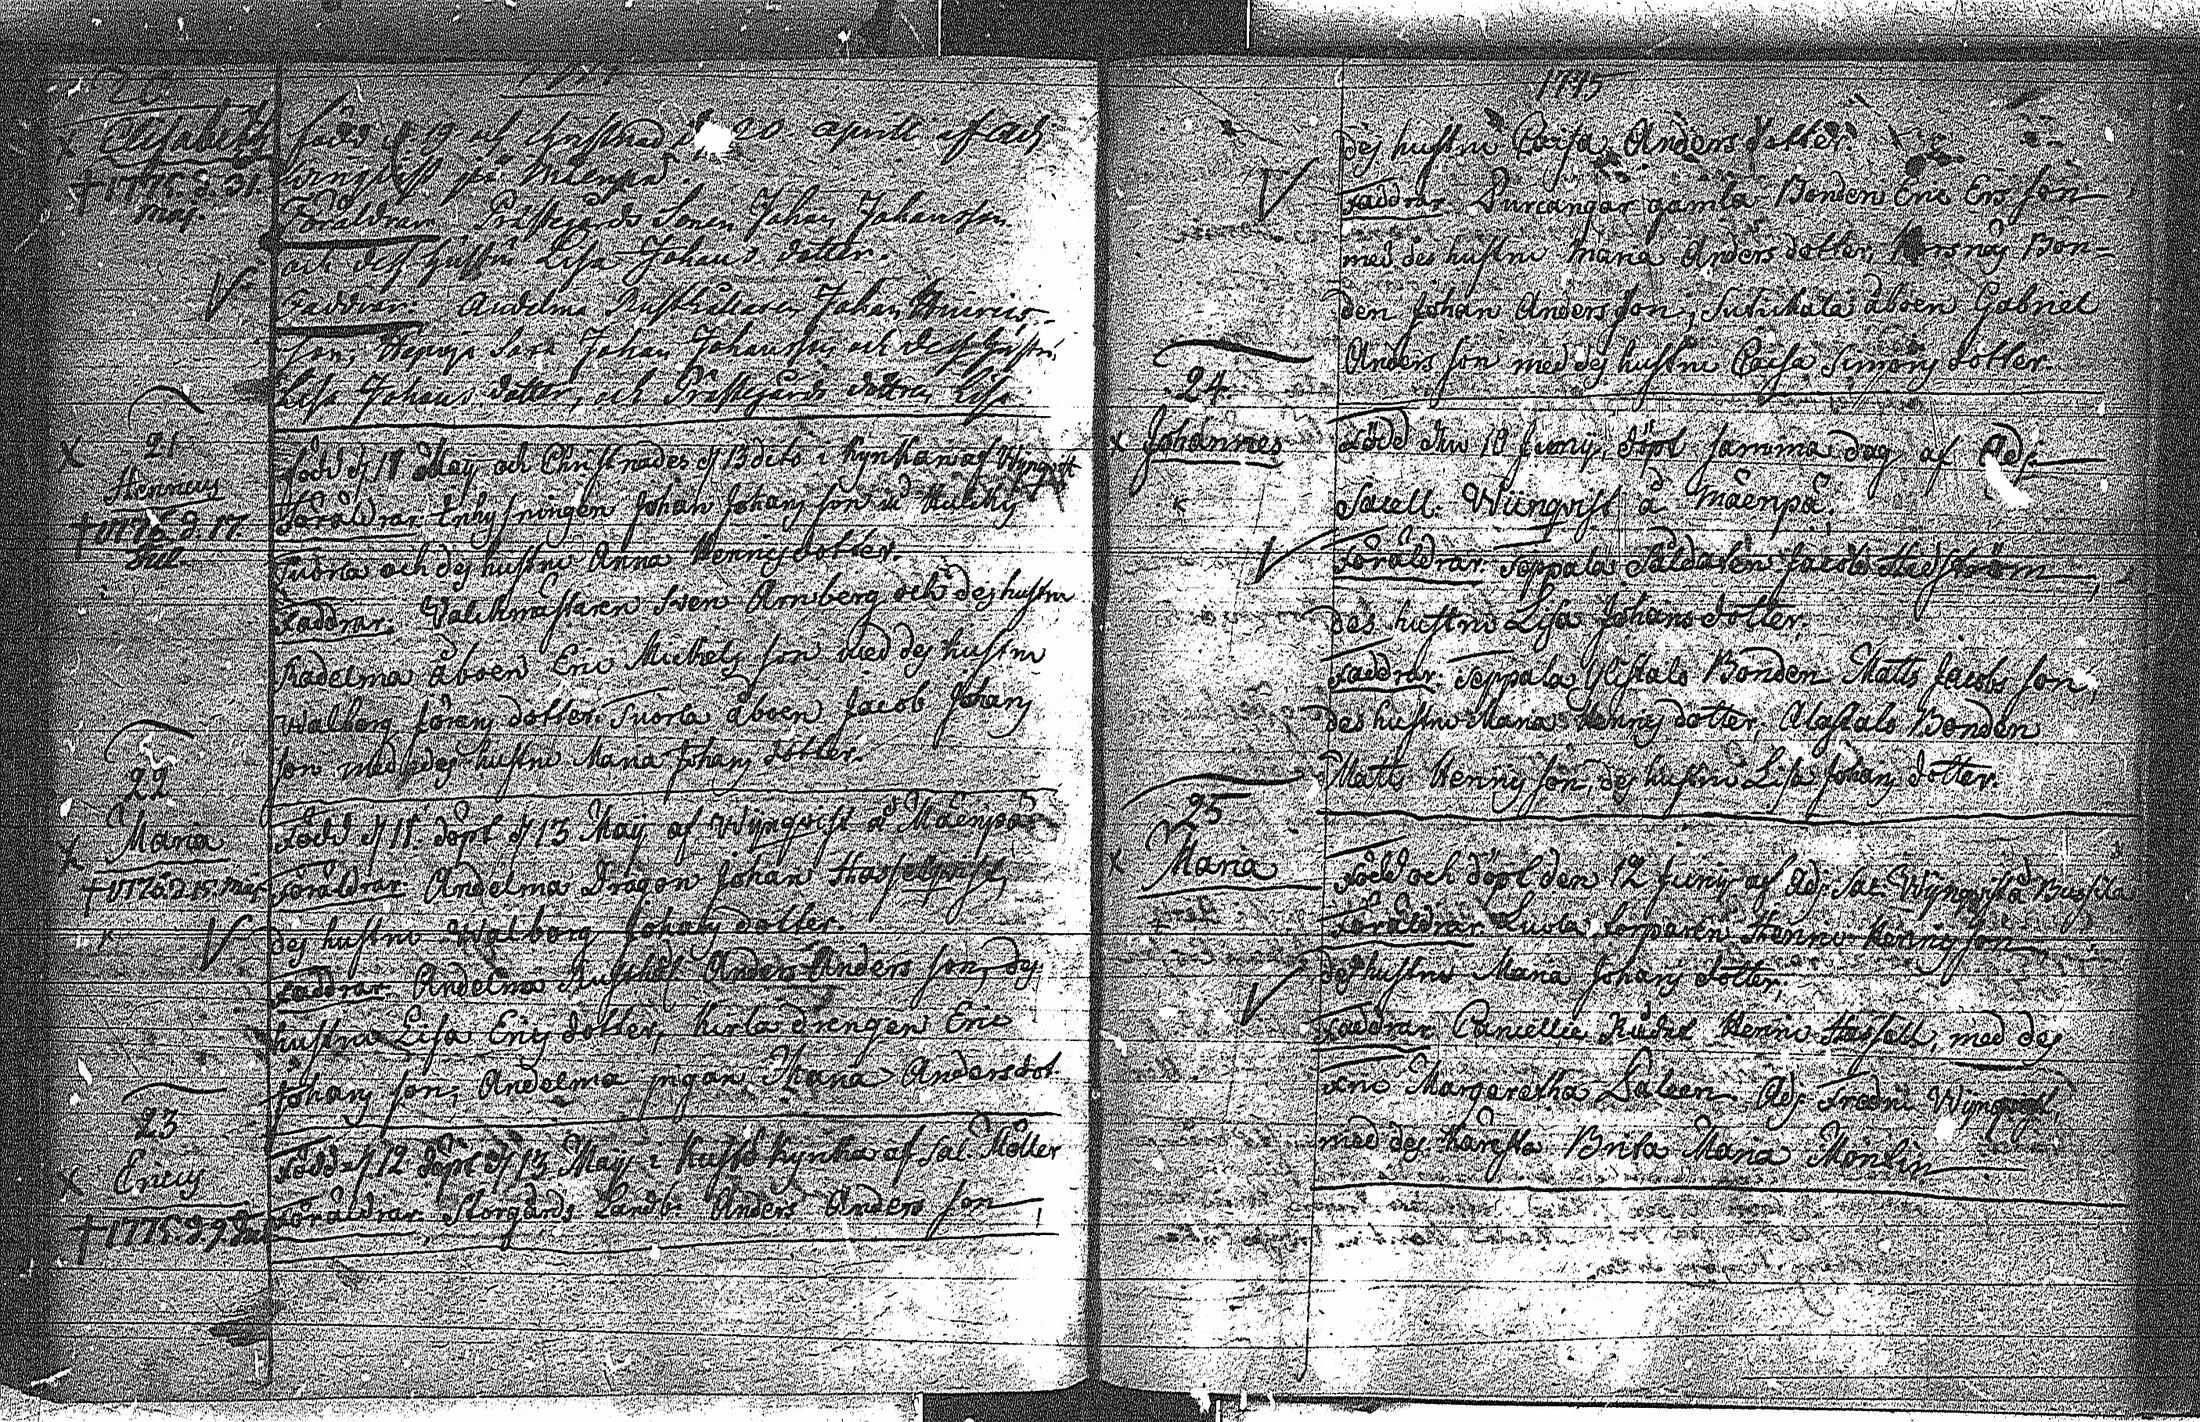 20
Elisabeth
† 1775. d. 31.
maj.
född d. 19 och Christnad d. 20 aprill af Adj.
på Mäenpä.
Föräldrar Prästegårds Sonen Johan Johansson
och dess hustru Lisa Johans dotter.
Faddrar: Andelma Rusthållaren Johan Henrics
son, Sonen Johan Johansson och dess hustru
Lisa Johans dotter, och Prästegårds dottren Lisa
21
Henricus
† 1775 d. 17.
Jul.
född d 11 Maij och Christnades d 13 dito i Kyrkan af Wijnqvist
Föräldrar Inhysningen Johan Johans son
Tuorla och des hustru Anna Henrics dotter.
Faddrar: Walckmästaren Sven Arnberg och des hustru
Kadelma åboen Eric Michels son med des hustru
Walborg Jörans dotter. Tuorla åboen Jacob Johans
son med des hustru Maria Johans dotter.
22
Maria
† 1775. d. 15. maj.
Född d 11. döpt d 13 Maij af Wijnqvist å Mäenpä
Föräldrar Andelma Dragon Johan Hasselqvist,
des hustru Walborg Johans dotter.
Faddrar: Andelma Rusthål. Anders Anders son, des
hustru Lisa Erics dotter, Kirla drengen Eric
Johans son, Andelma pigan Maria Andersdot.
23
Ericus
† 1775. d. 9. Jul.
Född d 12 döpt d 13 Maij i Kusto Kyrka af Sal. Möller
Föräldrar. Storgårds Landb. Anders Anders son
1775
des hustru Caisa Anders dotter.
Faddrar Purcangar gamla Bonden Eric Ers son
med des hustru Maria Anders dotter, Korsnäs Bon=
den Johan Anders son, åboen Gabriel
Anders son med des hustru Caisa Simons dotter.
24.
Johannes
Född den 10 Junij, döpt samma dag af Adj.
Sacell. Wiinqvist å Mäenpä.
Föräldrar: Seppala Saldaten Jacob
des hustru Lisa Johans dotter,
Faddrar: Seppala Ylistalo Bonden Matts Jacobs son,
des hustru Maria Henrics dotter, Alastalo Bonden
Matts Henrics son, des hustru Lisa Johans dotter.
25
Maria
Född och döpt den 12 Junij af Adj. Sac. Wijnqvist å
Föräldrar Luola Torparen Henric Henrics son
des hustru Maria Johans dotter,
Faddrar Henric Hassell, med des
Fru Margaretha Saleen Adj. Fredric Wijnqvist,
med des käresta Brita Maria Montin